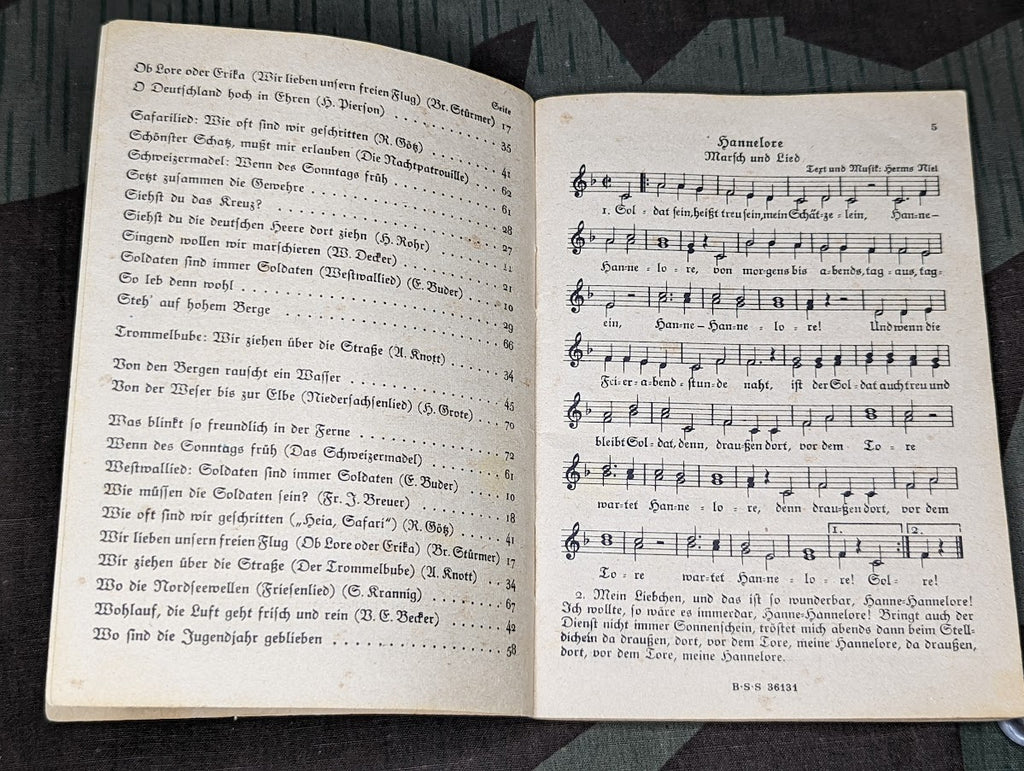 Seite
Ob Lore oder Erika (Wir lieben unsern freien Flug) (Br. Stürmer) 17
O Deutschland hoch in Ehren (H. Pierson) . . . . . . . . 35
Safarilied: Wie oft sind wir geschritten (R. Götz) . . . . . . 41
Schönster Schatz, mußt mir erlauben (Die Nachtpatrouille) . . . 62
Schweizermadel: Wenn des Sonntags früh . . . . . . . 61
Setzt zusammen die Gewehre . . . . . . . . . . . 28
Siehst du das Kreuz? . . . . . . . . . . . . 27
Siehst du die deutschen Heere dort ziehn (H. Rohr) . . . . . 11
Singend wollen wir marschieren (W. Decker) . . . . . . . 21
Soldaten sind immer Soldaten (Westwallied) (E. Buder) . . . . 10
So leb denn wohl . . . . . . . . . . . . . 29
Steh' auf hohem Berge . . . . . . . . . . . . 66
Trommelbube: Wir ziehen über die Straße (A. Knott) . . . . . 34
Von den Bergen rauscht ein Wasser . . . . . . . . . 45
Von der Weser bis zur Elbe (Niedersachsenlied) (H. Grote) . . . 70
Was blinkt so freundlich in der Ferne . . . . . . . . . 72
Wenn des Sonntags früh (Das Schweizermadel) . . . . . . 61
Westwallied: Soldaten sind immer Soldaten (E. Buder) . . . . 10
Wie müssen die Soldaten sein? (Fr. J. Breuer) . . . . . . 18
Wie oft sind wir geschritten („Heia, Safari“) (R. Götz) . . . . 41
Wir lieben unsern freien Flug (Ob Lore oder Erika) (Br. Stürmer) 17
Wir ziehen über die Straße (Der Trommelbube) (A. Knott) . . . 34
Wo die Nordseewellen (Friesenlied) (S. Krannig) . . . . . . 67
Wohlauf, die Luft geht frisch und rein (V. E. Becker) . . . . . 42
Wo sind die Jugendjahr geblieben . . . . . . . . . . 58
5
Hannelore
Marsch und Lied
Text und Musik: Herms Niel
1. Sol - dat sein, heißt treu sein, mein Schät-ze - lein, Han-ne-
Han-ne - lo - re, von mor-gens bis a-bends, tag - aus, tag-
ein, Han-ne - Han-ne - lo - re! Und wenn die
Fei-er-a-bend - stun-de naht, ist der Sol - dat auch treu und
bleibt Sol - dat, denn, drau-ßen dort, vor dem To - re
war-tet Han-ne - lo - re, denn drau-ßen dort, vor dem
1. 2.
To - re war-tet Han-ne - lo - re! Sol - re!
2. Mein Liebchen, und das ist so wunderbar, Hanne-Hannelore!
Ich wollte, so wäre es immerdar, Hanne-Hannelore! Bringt auch der
Dienst nicht immer Sonnenschein, tröstet mich abends dann beim Stell-
dichein da draußen, dort, vor dem Tore, meine Hannelore, da draußen,
dort, vor dem Tore, meine Hannelore.
B·S·S 36131